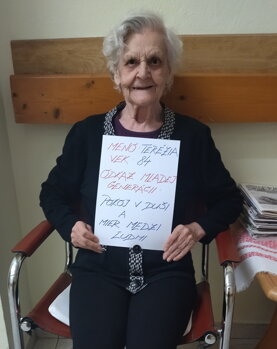 MENO TERÉZIA
VEK 84
ODKAZ MLADEJ
GENERÁCII:
POKOJ V DUŠI
A
MIER MEDZI
ĽUĎMI